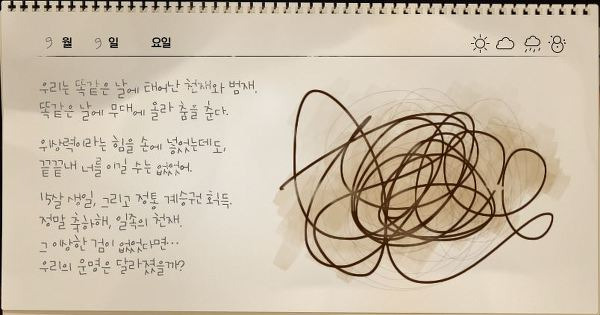 9 월 9 일 요일
우리는 똑같은 날에 태어난 천재와 범재.
똑같은 날에 무대에 올라 춤을 춘다.
위상력이라는 힘을 손에 넣었는데도,
끝끝내 너를 이길 수는 없었어.
15살 생일, 그리고 정통 계승권 획득.
정말 축하해, 일족의 천재.
그 이상한 검이 없었다면…
우리의 운명은 달라졌을까?